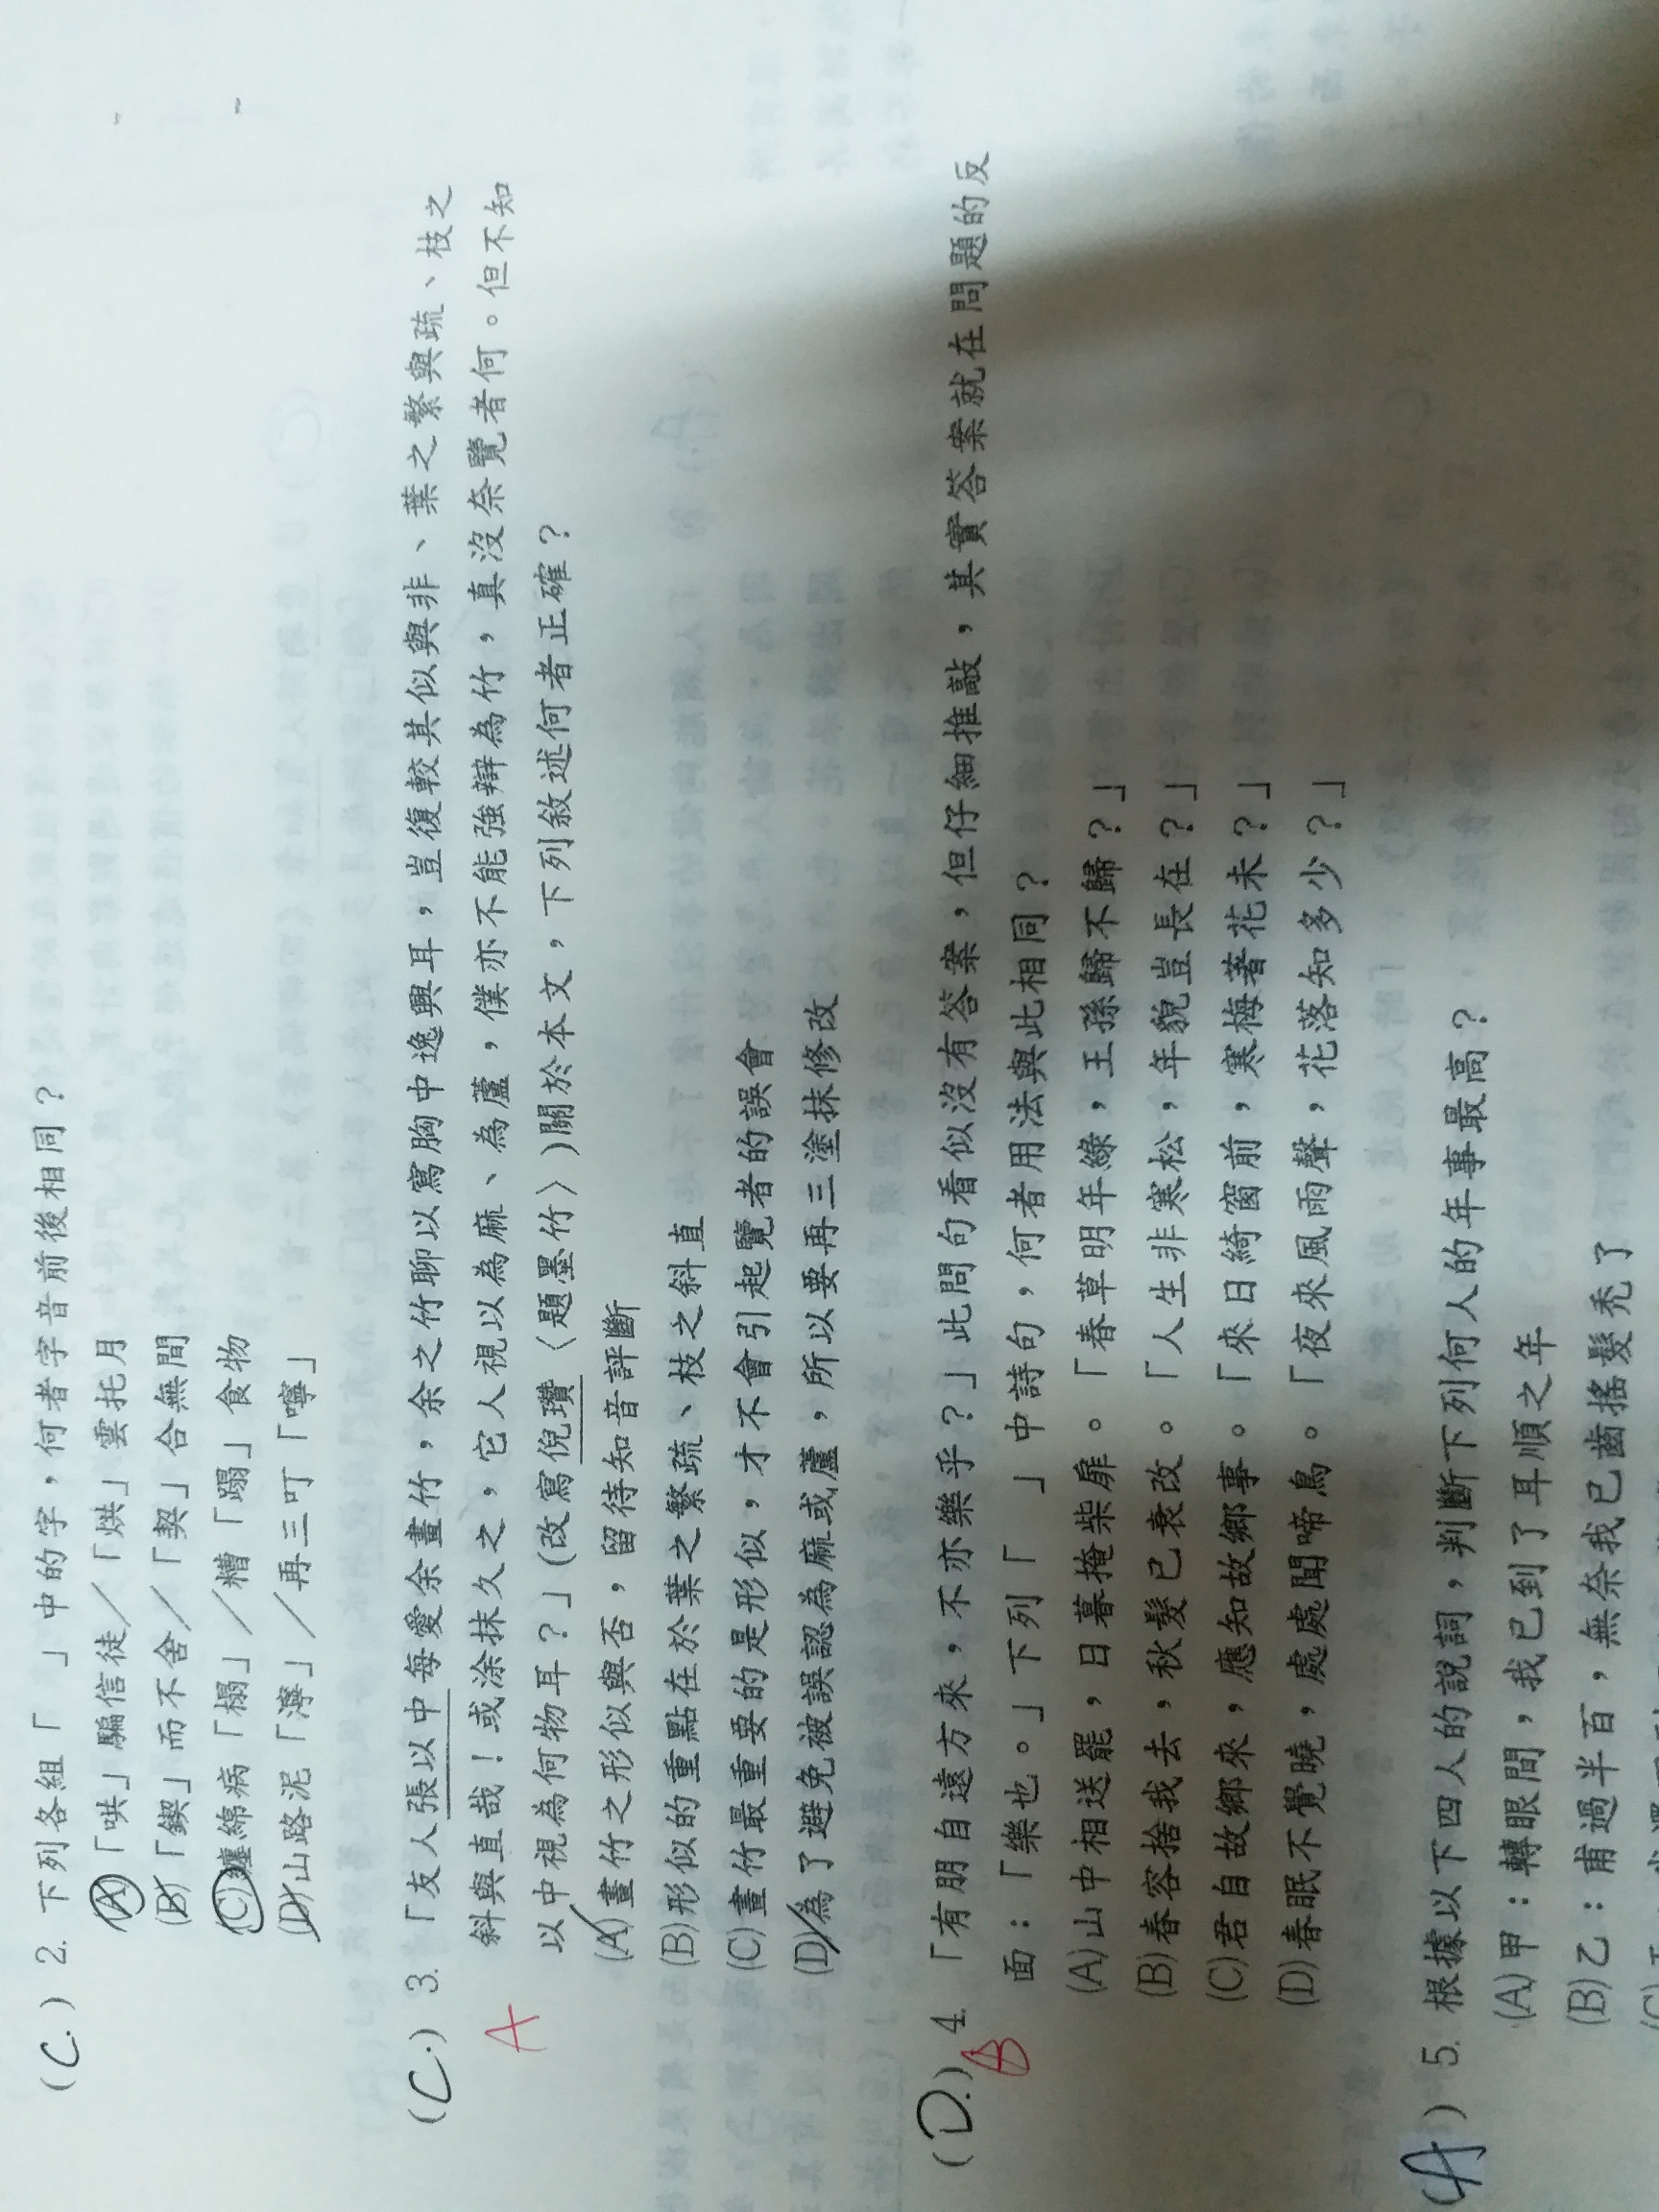 (C.) 2. 下列各組「　」中的字，何者字音前後相同？
(A)「哄」騙信徒／「烘」雲托月
(B)「鍥」而不舍／「契」合無間
(C)纏綿病「榻」／糟「蹋」食物
(D)山路泥「濘」／再三叮「嚀」
(C.) 3. 「友人張以中每愛余畫竹，余之竹聊以寫胸中逸興耳，豈復較其似與非、葉之繁與疏、枝之
斜與直哉！或涂抹久之，它人視以為麻、為蘆，僕亦不能強辯為竹，真沒奈覽者何。但不知
以中視為何物耳？」(改寫倪瓚〈題墨竹〉)關於本文，下列敘述何者正確？
A
(A)畫竹之形似與否，留待知音評斷
(B)形似的重點在於葉之繁疏、枝之斜直
(C)畫竹最重要的是形似，才不會引起覽者的誤會
(D)為了避免被誤認為麻或蘆，所以要再三塗抹修改
(D.) 4. 「有朋自遠方來，不亦樂乎？」此問句看似沒有答案，但仔細推敲，其實答案就在問題的反
B
面：「樂也。」下列「　」中詩句，何者用法與此相同？
(A)山中相送罷，日暮掩柴扉。「春草明年綠，王孫歸不歸？」
(B)春容捨我去，秋髮已衰改。「人生非寒松，年貌豈長在？」
(C)君自故鄉來，應知故鄉事。「來日綺窗前，寒梅著花未？」
(D)春眠不覺曉，處處聞啼鳥。「夜來風雨聲，花落知多少？」
(A) 5. 根據以下四人的說詞，判斷下列何人的年事最高？
(A)甲：轉眼間，我已到了耳順之年
(B)乙：甫過半百，無奈我已齒搖髮禿了